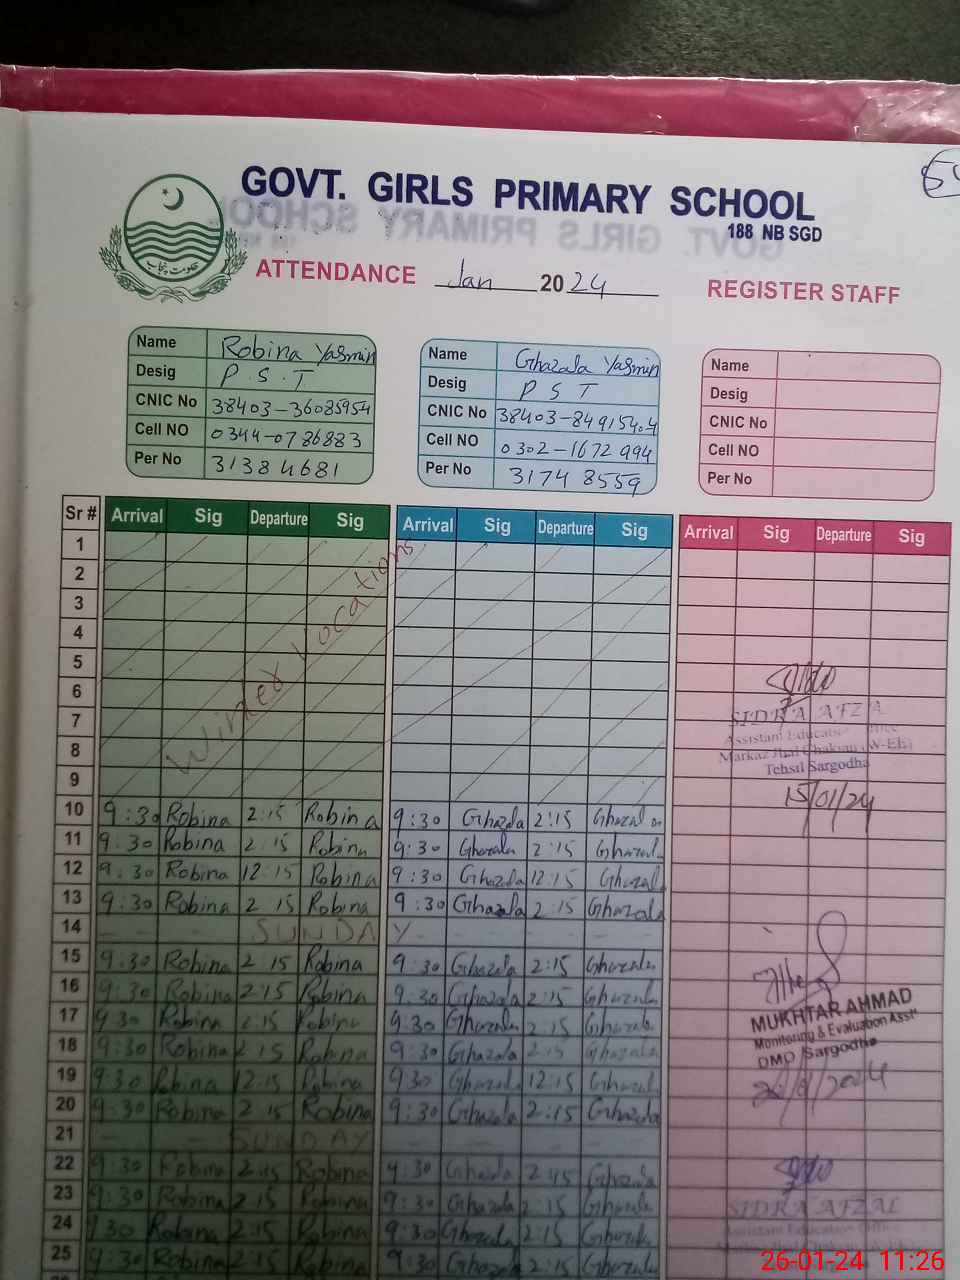 54
GOVT. GIRLS PRIMARY SCHOOL
188 NB SGD
حکومت پنجاب
ATTENDANCE Jan 2024 REGISTER STAFF
Name Robina Yasmin
Desig P.S.T
CNIC No 38403-36085954
Cell NO 0344-0786883
Per No 31384681
Name Ghazala Yasmin
Desig P S T
CNIC No 38403-8491540.4
Cell NO 0302-1672994
Per No 31748559
Name
Desig
CNIC No
Cell NO
Per No
Sr # Arrival Sig Departure Sig Arrival Sig Departure Sig Arrival Sig Departure Sig
1
2
3
4
5
6
7
8
9
Winter Vocations
10 9:30 Robina 2:15 Robina 9:30 Ghazala 2:15 Ghazala
11 9:30 Robina 2:15 Robina 9:30 Ghazala 2:15 Ghazala
12 9:30 Robina 12:15 Robina 9:30 Ghazala 12:15 Ghazala
13 9:30 Robina 2 15 Robina 9:30 Ghazala 2:15 Ghazala
14 SUNDAY
15 9:30 Robina 2:15 Robina 9:30 Ghazala 2:15 Ghazala
16 9:30 Robina 2:15 Robina 9:30 Ghazala 2:15 Ghazala
17 9 30 Robina 2:15 Robina 9:30 Ghazala 2:15 Ghazala
18 9:30 Robina 2 15 Robina 9:30 Ghazala 2:15 Ghazala
19 9:30 Robina 12:15 Robina 9 30 Ghazala 12:15 Ghazala
20 9:30 Robina 2 15 Robina 9:30 Ghazala 2:15 Ghazala
21 SUNDAY
22 9:30 Robina 2:15 Robina 9:30 Ghazala 2:15 Ghazala
23 9:30 Robina 2:15 Robina 9:30 Ghazala 2:15 Ghazala
24 9:30 Robina 2:15 Robina 9:30 Ghazala 2:15 Ghazala
25 9:30 Robina 2:15 Robina 9:30 Ghazala 2:15 Ghazala
SIDRA AFZA
Assistant Education Office
Markaz Jhal Chakian (W-EE)
Tehsil Sargodha
15/01/24
MUKHTAR AHMAD
Monitoring & Evaluation Asstt
DMO Sargodha
SIDRA AFZAL
Assistant Education Office
26-01-24 11:26